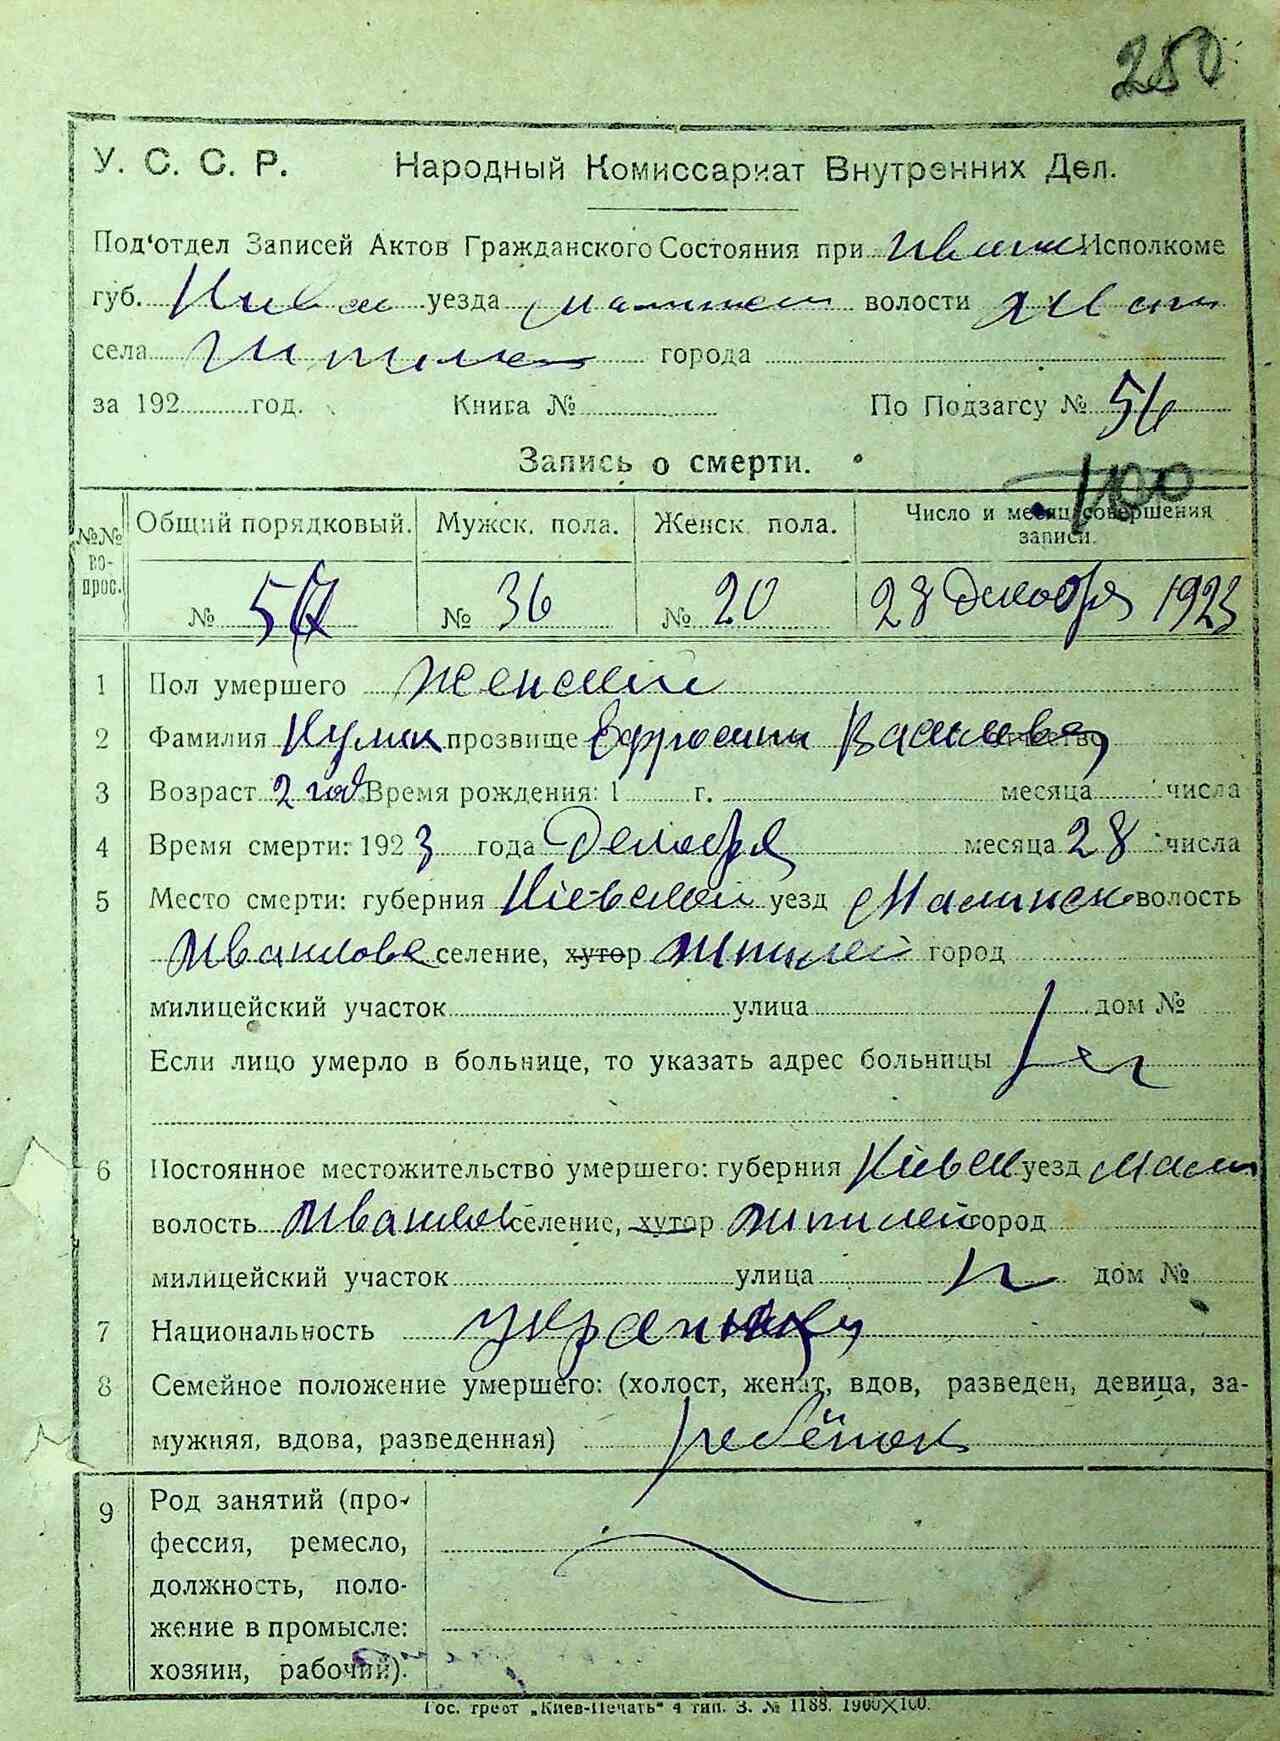 250
У. С. С. Р. Народный Комиссариат Внутренних Дел.
Под'отдел Записей Актов Гражданского Состояния при Исполкоме
губ. уезда волости
села города
за 192 год. Книга № По Подзагсу № 56
Запись о смерти.
100
№№ во-прос. Общий порядковый. Мужск. пола. Женск. пола. Число и месяц совершения записи.
№ 56 № 36 № 20 28 Декабря 1923
1 Пол умершего женский
2 Фамилия Кулик прозвище Ефросини Василиева отчество
3 Возраст 2 год Время рождения: 1 г. месяца числа
4 Время смерти: 1923 года Декабря месяца 28 числа
5 Место смерти: губерния Кіевской уезд Малинск волость
Ивашков селение, хутор город
милицейский участок улица дом №
Если лицо умерло в больнице, то указать адрес больницы
6 Постоянное местожительство умершего: губерния Кіевск уезд Малин
волость Ивашков селение, хутор город
милицейский участок улица дом №
7 Национальность
8 Семейное положение умершего: (холост, женат, вдов, разведен, девица, за-
мужняя, вдова, разведенная) ребёнок
9 Род занятий (про-
фессия, ремесло,
должность, поло-
жение в промысле:
хозяин, рабочий).
Гос. трест „Киев-Печать" 4 тип. З. № 1188. 1900×100.